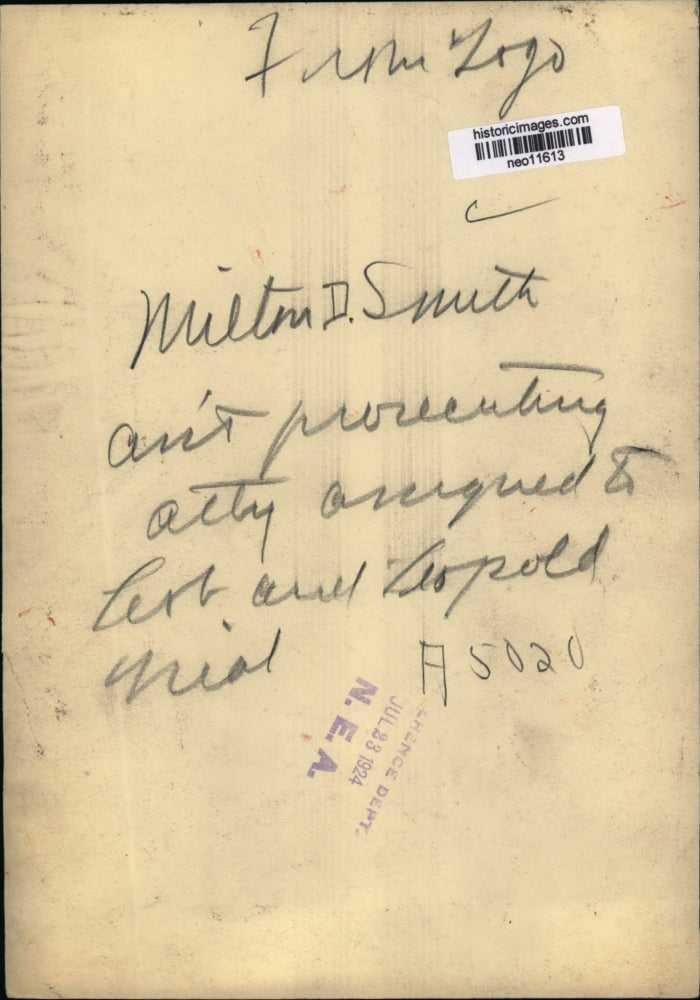 From Chgo
historicimages.com
neo11613
Milton D. Smith
ass't prosecuting
atty assigned to
Leob and Leopold
trial
A5020
ERENCE DEPT.
JUL 23 1924
N. E. A.